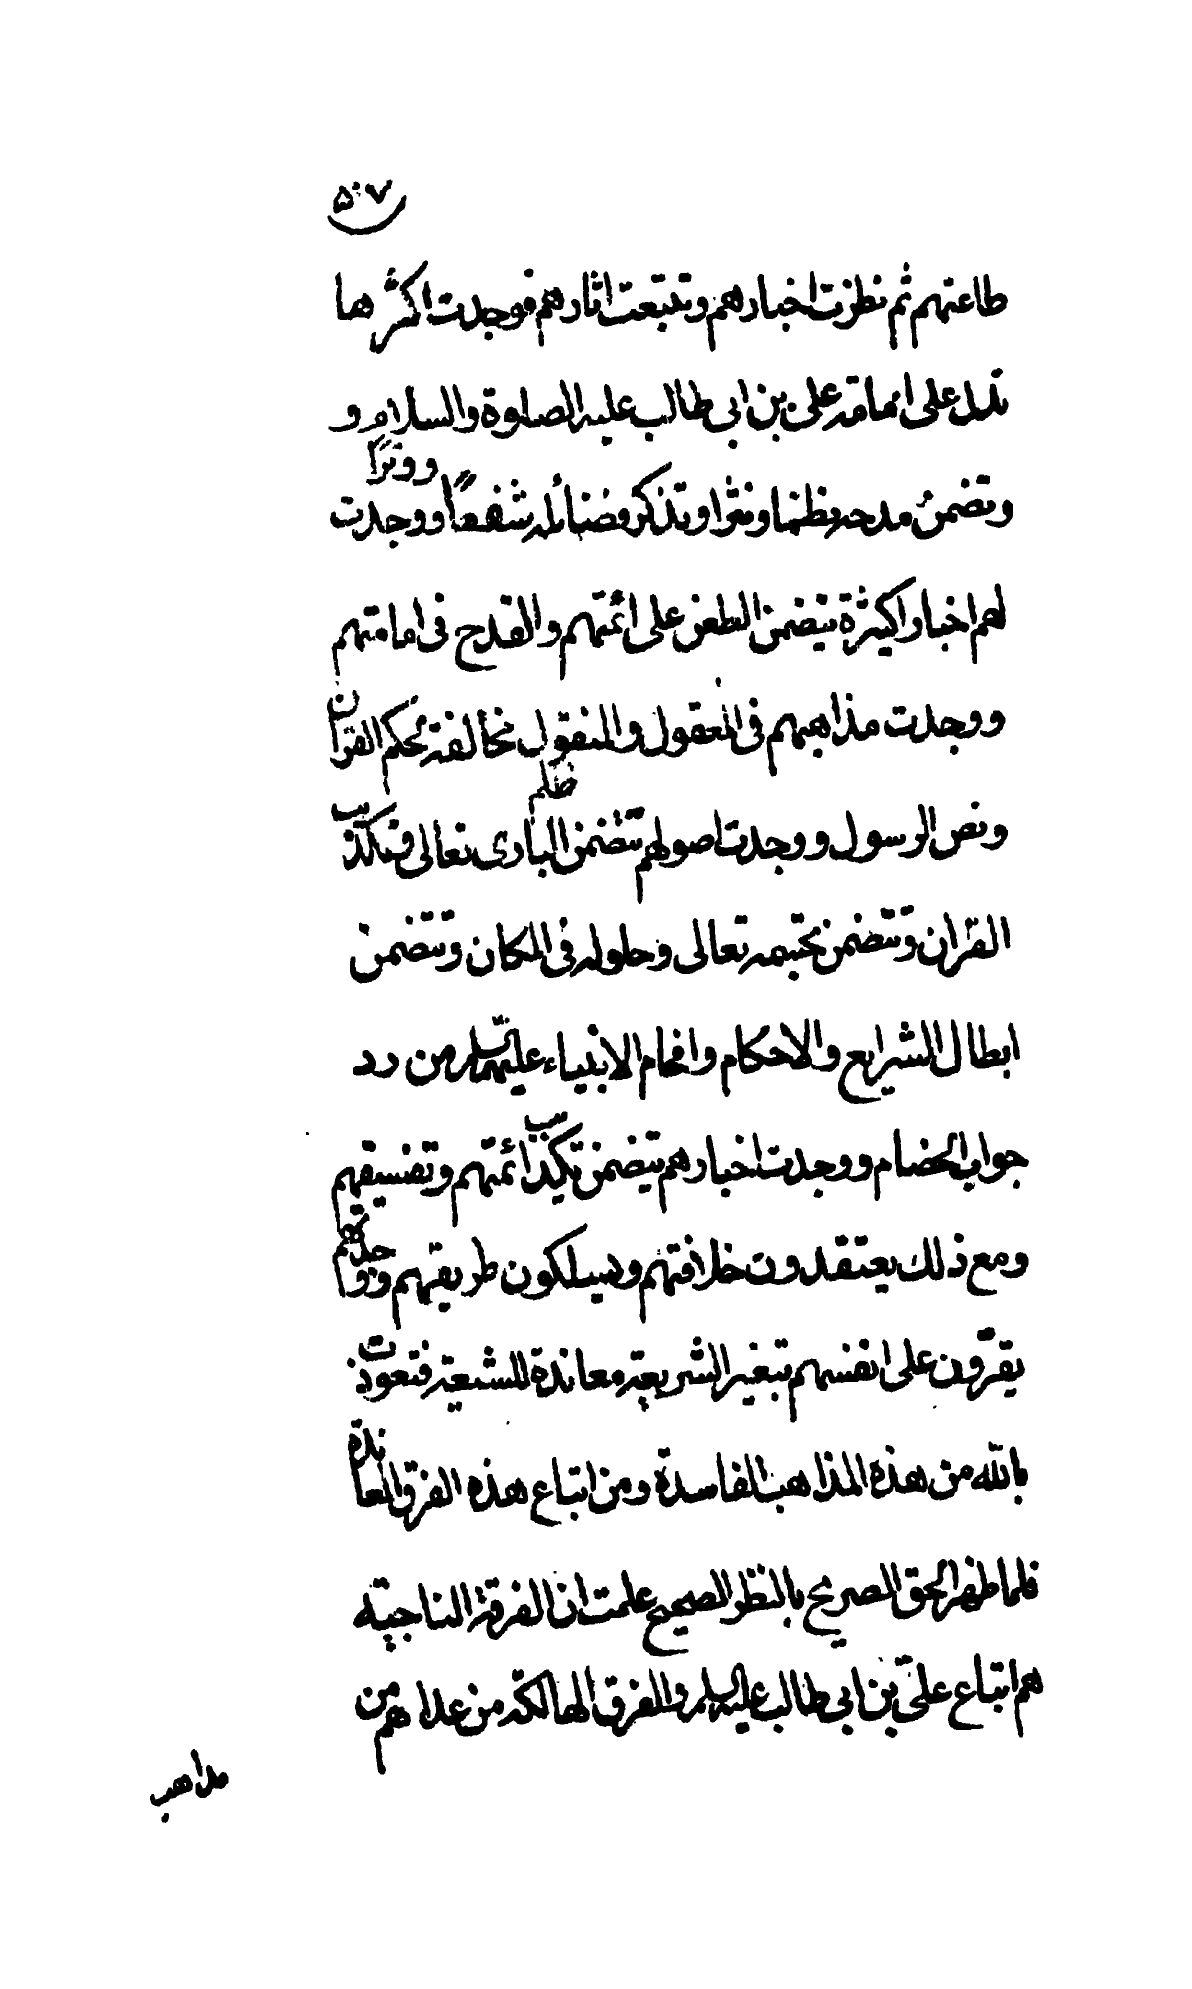 ٥٠٧
طاعتهم ثم نظرت اخبارهم وتتبعت اثارهم فوجدت اكثرها
تدل على امامة على بن ابى طالب عليه الصلوة والسلام و
وتضمن مدحه نظما ونثرا وتذكر فضائله شفعًا ووترًا ووجدت
لهم اخبارا كثيرة يتضمن الطعن على ائمتهم والقدح فى امامتهم
ووجدت مذاهبهم فى المعقول والمنقول مخالفة لحكم القران
ونص الرسول ووجدت اصولهم تتضمن ظلم البارى تعالى وتكذيب
القران وتتضمن تجسيمه تعالى وحلوله فى المكان وتتضمن
ابطال الشرايع والاحكام وافحام الانبياء عليهم السلم من رد
جواب الخصام ووجدت اخبارهم يتضمن تكذيب ائمتهم وتفسيقهم
ومع ذلك يعتقدون خلافتهم ويسلكون طريقهم ووجدتهم
يقرّون على انفسهم بتغير الشريعة معاندة للشيعة فتعوذت
بالله من هذه المذاهب الفاسدة ومن اتباع هذه الفرق المعاندة
فلما ظهر الحق الصريح بالنظر الصحيح علمت ان الفرقة الناجية
هم اتباع على بن ابي طالب عليه السلم والفرق الهالكة من عداهم من
مذاهب